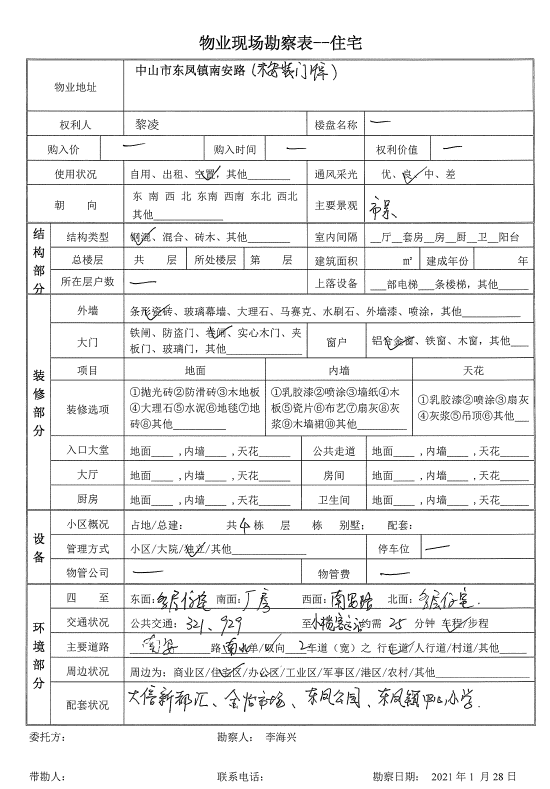 物业现场勘察表--住宅
物业地址 中山市东凤镇南安路（未安装门牌）
权利人 黎凌 楼盘名称 —
购入价 — 购入时间 — 权利价值 —
使用状况 自用、出租、空置，其他____ 通风采光 优、良、中、差
朝 向 东 南 西 北 东南 西南 东北 西北
其他____ 主要景观 市景
结构部分
结构类型 钢混、混合、砖木、其他____ 室内间隔 __厅__套房__房__厨__卫__阳台
总楼层 共 层 所处楼层 第 层 建筑面积 ㎡ 建成年份 年
所在层户数 — 上落设备 ___部电梯___条楼梯，其他____
装修部分
外墙 条形瓷砖、玻璃幕墙、大理石、马赛克、水刷石、外墙漆、喷涂，其他____
大门 铁闸、防盗门、卷闸、实心木门、夹
板门、玻璃门，其他____ 窗户 铝合金窗、铁窗、木窗，其他___
项目 地面 内墙 天花
装修选项 ①抛光砖②防滑砖③木地板
④大理石⑤水泥⑥地毯⑦地
砖⑧其他____
①乳胶漆②喷涂③墙纸④木
板⑤瓷片⑥布艺⑦扇灰⑧灰
浆⑨木墙裙⑩其他____
①乳胶漆②喷涂③扇灰
④灰浆⑤吊顶⑥其他___
入口大堂 地面____ ,内墙____ ,天花____ 公共走道 地面____ ,内墙____ ,天花____
大厅 地面____ ,内墙____ ,天花____ 房间 地面____ ,内墙____ ,天花____
厨房 地面____ ,内墙____ ,天花____ 卫生间 地面____ ,内墙____ ,天花____
设备
小区概况 占地/总建： 共 4 栋 层 栋 别墅： 配套：
管理方式 小区/大院/独立/其他____ 停车位 —
物管公司 — 物管费 —
环境部分
四 至 东面：多层住宅 南面：厂房 西面：南安路 北面：多层住宅.
交通状况 公共交通：321、929 至 小榄客运站 约需 25 分钟 车程/步程
主要道路 南安 路 南北 单/双向 2 车道（宽）之 行车道/人行道/村道/其他____
周边状况 周边为：商业区/住宅区/办公区/工业区/军事区/港区/农村/其他____
配套状况 大信新都汇、金怡市场、东凤公园、东凤镇中心小学.
委托方： 勘察人： 李海兴
带勘人： 联系电话： 勘察日期： 2021 年 1 月 28 日